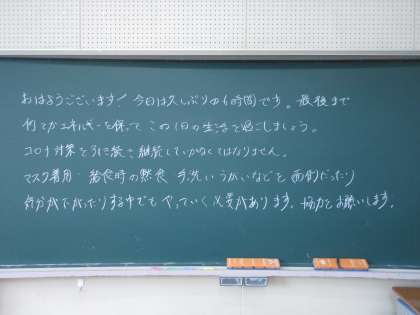 おはようございます！今日は久しぶりの6時間です。最後まで
何とかエネルギーを保って この1日の生活を過ごしましょう。
コロナ対策を引き続き継続していかなくてはなりません。
マスク着用・給食時の黙食 手洗いうがいなどを 面倒だったり
気分が下がったりする中でも やっていく必要があります。協力をお願いします。